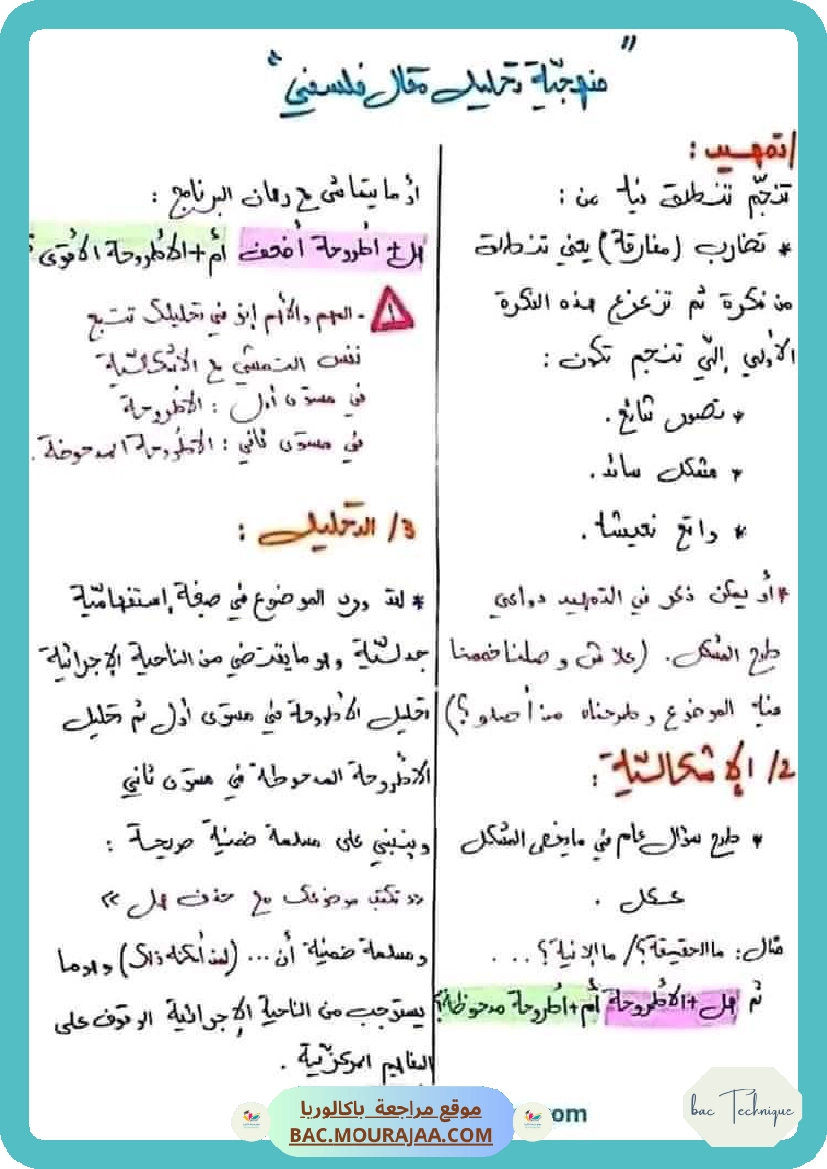 "منهجيّة تحليل مقال فلسفي"
1/ تمهيد :
تنجّم تنطلق فيه من :
* تضارب (مفارقة) يعني تنطلق
من فكرة ثم تزعزع هذه الفكرة
الأولى إلّي تنجم تكون :
* تصور شائع.
* مشكل سائد.
* واقع نعيشه.
* أو يمكن ذكر في التمهيد دواعي
طرح المشكل. (علاش وصلنا خممنا
في الموضوع وطرحناه من أصلو؟)
2/ الإشكاليّة :
* طرح سؤال عام في ما يخص المشكل
ككل .
مثال: ما الحقيقة؟/ ما الإنية؟ ...
ثم هل + الأطروحة أم + أطروحة مدحوضة؟
أو ما يتماشى مع رهان البرنامج :
هل + أطروحة أضعف أم + الأطروحة الأقوى
- المهم والأهم إنو في تحليلك تتبع
نفس التمشي مع الإشكاليّة
في مستوى أول : الأطروحة
في مستوى ثاني : الأطروحة المدحوضة.
3/ التحليل :
* لقد ورد الموضوع في صيغة إستفهاميّة
جدليّة وهو ما يقتضي من الناحية الإجرائية
تحليل الأطروحة في مستوى أول ثم تحليل
الأطروحة المدحوضة في مستوى ثاني
وينبني على مسلمة ضمنية صريحة :
<< تكتب موضوعك مع حذف هل >>
ومسلمة ضمنية أن... وهو ما
يستوجب من الناحية الإجرائية الوقوف على
المفاهيم المركزيّة .
موقع مراجعة باكالوريا
BAC.MOURAJAA.COM
om
bac Technique